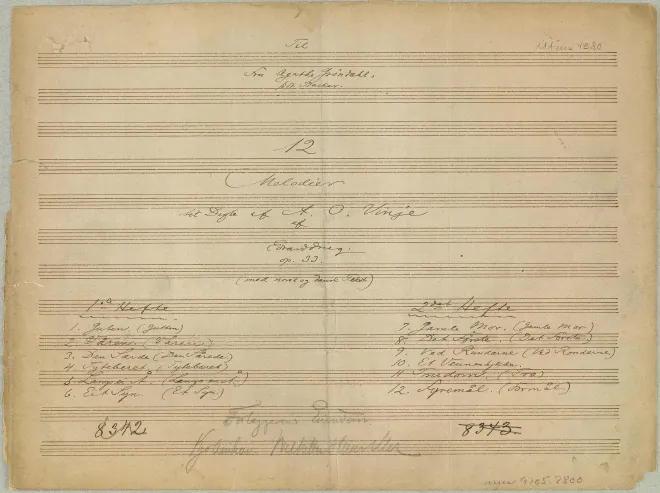 Til
Fru Agathe Gröndahl,
f. Backer.
12
Melodier
til Digte af A. O. Vinje
af
Edvard Grieg.
op. 33.
(med norsk og dansk Text)
1ste Hefte
1. Guten. (Gutten)
2. Våren. (Våren)
3. Den Særde. (Den Sårede)
4. Tyteberet. (Tytebæret)
5. Langs ei Å. (Langs en Å)
6. Eit Syn. (Et Syn)
8342
2det Hefte
7. Gamle Mor. (Gamle Mor)
8. Det Første. (Det Første)
9. Ved Rundarne. (Ved Ronderne)
10. Et Vennestykke.
11. Trudom. (Tro)
12. Fyremål. (Formål)
8343
Forlæggerens Eiendom.
Kjøbenhavn Wilhelm Hansen